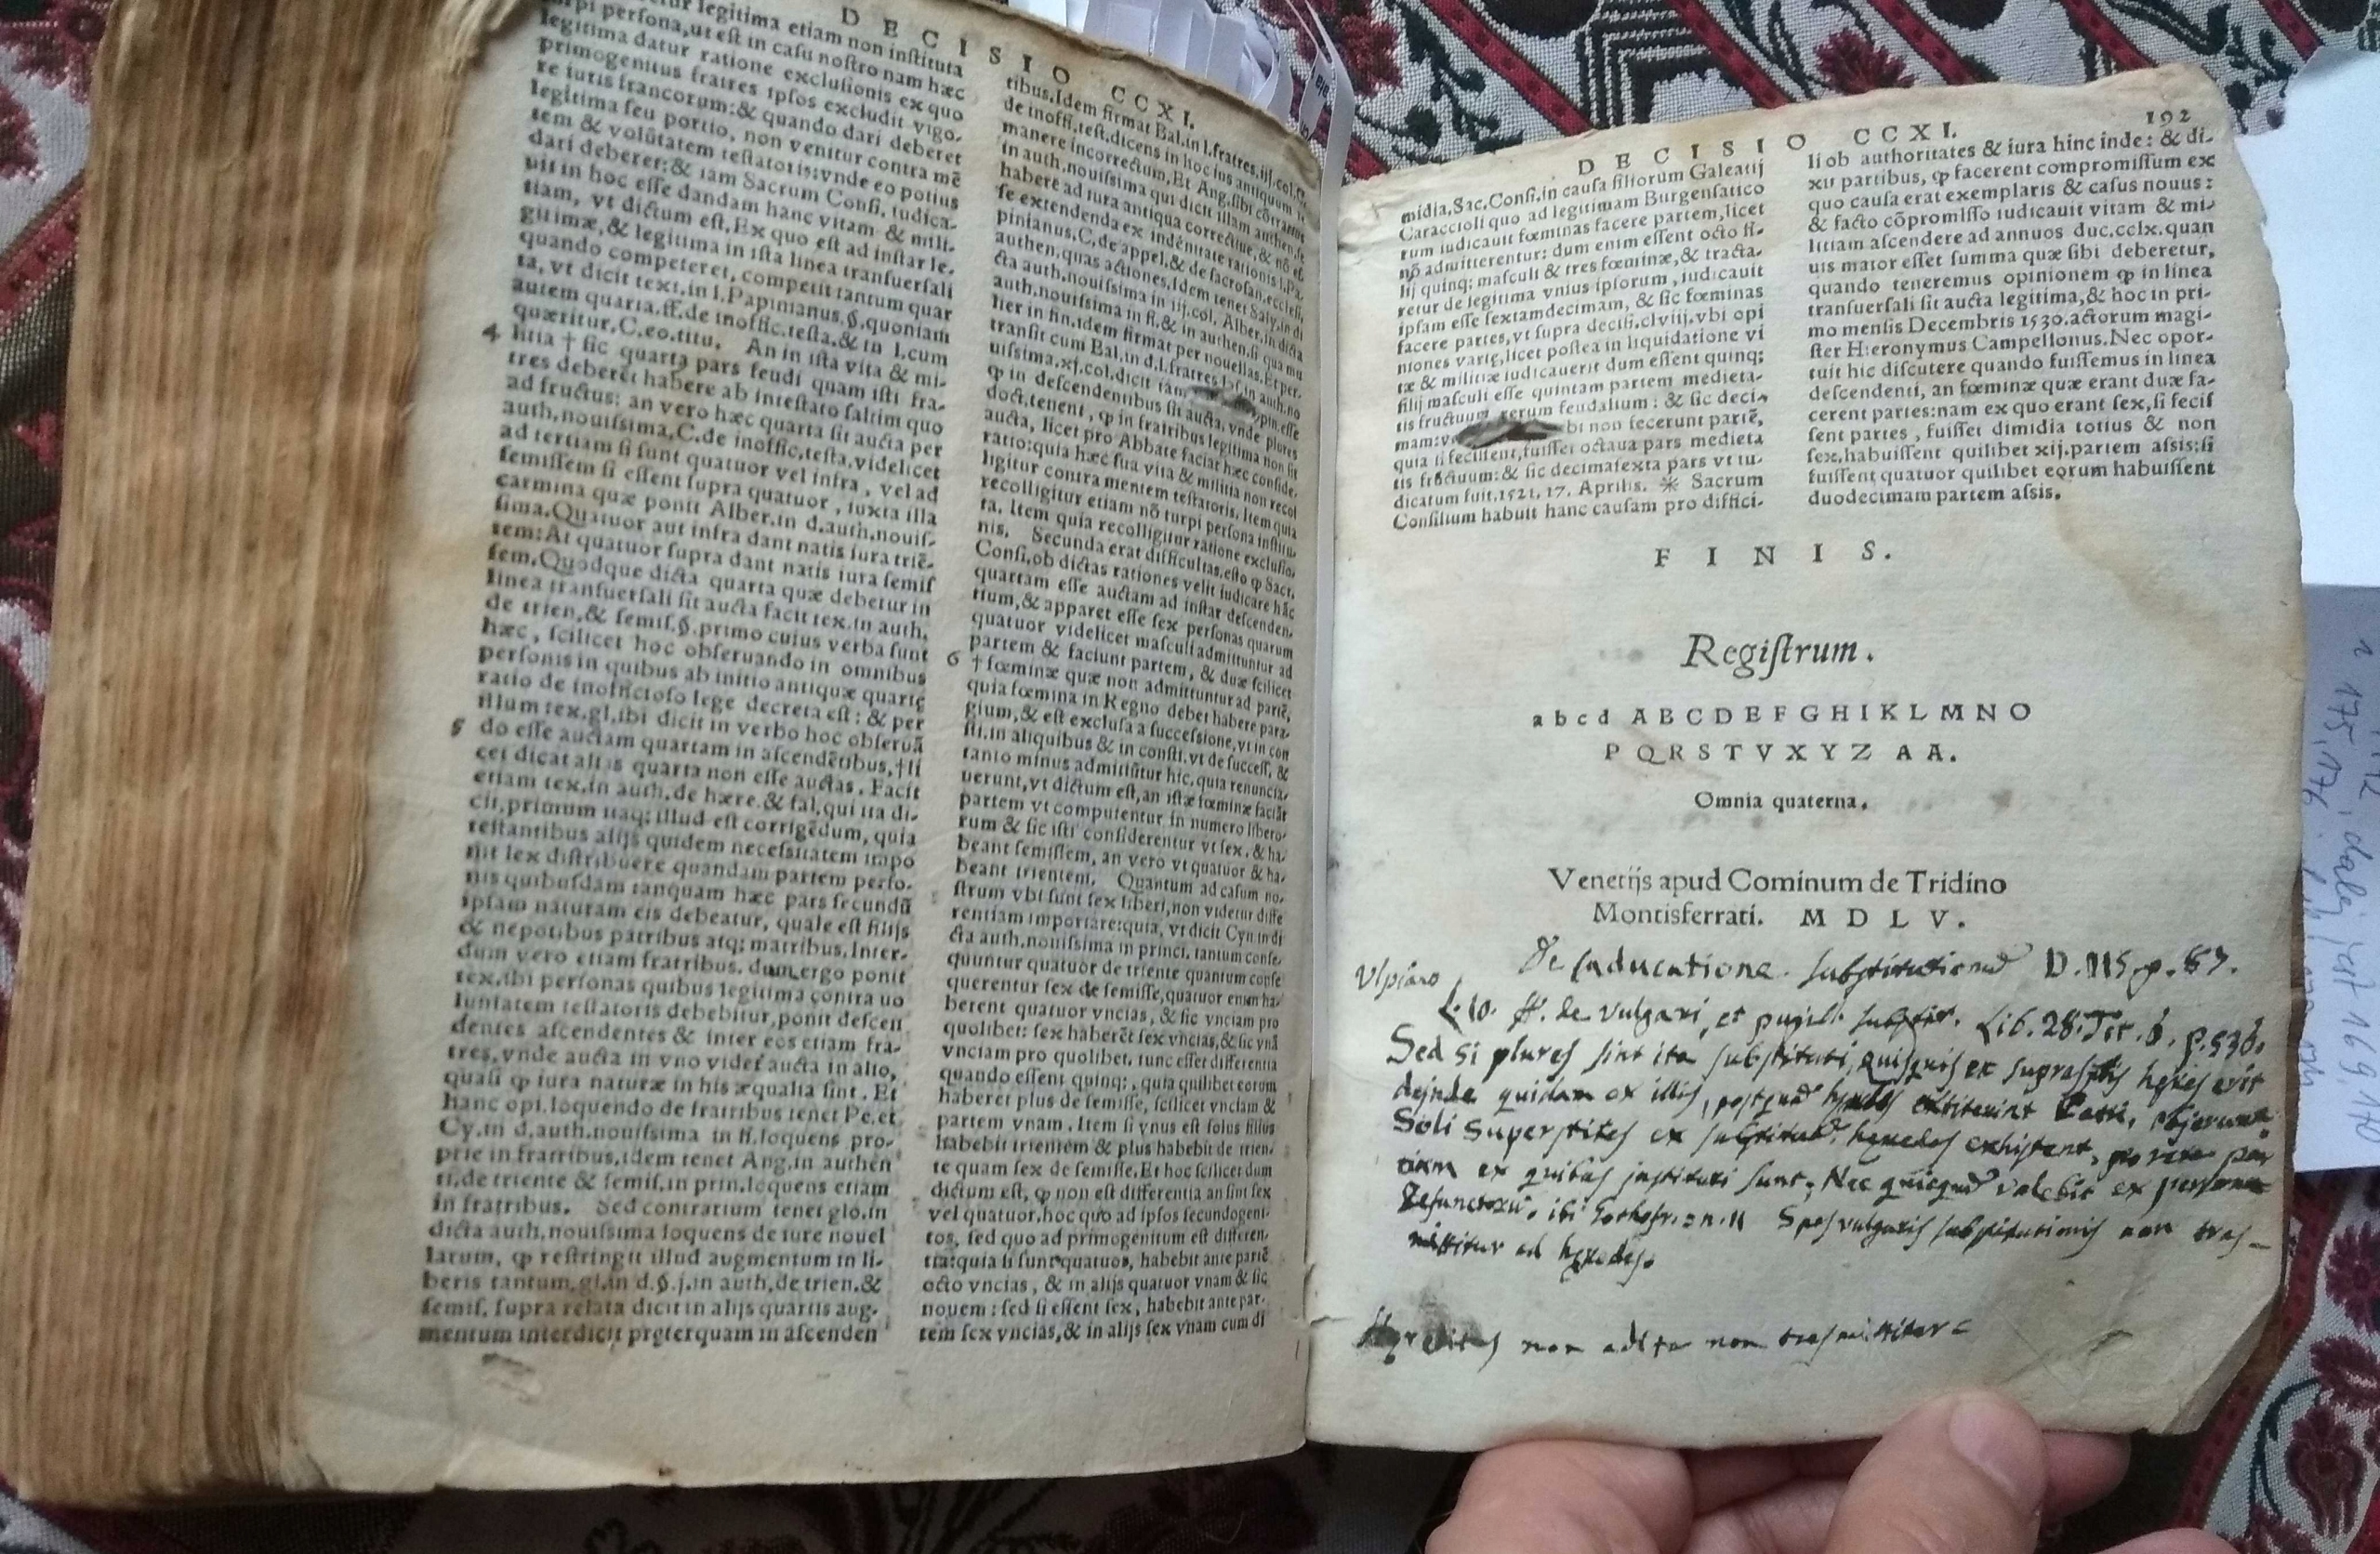 DECISIO CCXI.
legitima etiam non instituta
persona, ut est in casu nostro nam hæc
legitima datur ratione exclusionis ex quo
primogenitus fratres ipsos excludit vigo-
re iuris francorum: & quando dari deberet
legitima seu portio, non venitur contra mẽ
tem & volũtatem testatoris: vnde eo potius
dari deberet: & iam Sacrum Consi. iudica-
uit in hoc esse dandam hanc vitam & mili-
tiam, vt dictum est, Ex quo est ad instar le-
gitimæ, & legitima in ista linea transuersali
quando competeret, competit tantum quar
ta, vt dicit text. in l. Papinianus. §. quoniam
autem quarta. ff. de inoffic. testa. & in l. cum
quæritur, C. eo. titu. An in ista vita & mi-
4 litia † sic quarta pars feudi quam isti fra-
tres deberẽt habere ab intestato saltim quo
ad fructus: an vero hæc quarta sit aucta per
auth. nouissima, C. de inoffic. testa. videlicet
ad tertiam si sunt quatuor vel infra, vel ad
semissem si essent supra quatuor, iuxta illa
carmina quæ ponit Alber. in d. auth. nouis-
sima. Quatuor aut infra dant natis iura triẽ-
tem: At quatuor supra dant natis iura semis
sem, Quodque dicta quarta quæ debetur in
linea transuersali sit aucta facit tex. in auth.
de trien. & semis. §. primo cuius verba sunt
hæc, scilicet hoc obseruando in omnibus
personis in quibus ab initio antiquæ quartę
ratio de inofficioso lege decreta est: & per
illum tex. gl. ibi dicit in verbo hoc obseruã
5 do esse auctam quartam in ascendẽtibus, † li
cet dicat alias quarta non esse auctas. Facit
etiam tex. in auth. de hære. & fal. qui ita di-
cit, primum itaq; illud est corrigẽdum, quia
testantibus alijs quidem necessitatem impo
nit lex distribuere quandam partem perso-
nis quibusdam tanquam hæc pars secundũ
ipsam naturam eis debeatur, quale est filijs
& nepotibus patribus atq; matribus. Inter-
dum vero etiam fratribus. dum ergo ponit
tex. ibi personas quibus legitima contra uo
luntatem testatoris debebitur, ponit descen
dentes ascendentes & inter eos etiam fra-
tres, vnde aucta in vno videt aucta in alio,
quasi ꝙ iura naturæ in his æqualia sint. Et
hanc opi. loquendo de fratribus tenet Pe. et
Cy. in d. auth. nouissima in fi. loquens pro-
prie in fratribus, idem tenet Ang. in authen
ti. de triente & semis. in prin. loquens etiam
in fratribus. Sed contrarium tenet glo. in
dicta auth. nouissima loquens de iure nouel
larum, ꝙ restringit illud augmentum in li-
beris tantum, gl. in d. §. j. in auth. de trien. &
semis. supra relata dicit in alijs quartis aug-
mentum interdicit pręterquam in ascenden
tibus. Idem firmat Bal. in l. fratres. iij. col. C.
de inoffi. test. dicens in hoc ius antiquum
manere incorrectum, Et Ang. sibi cõtrarius
in auth. nouissima qui dicit illam authen. se
habere ad iura antiqua correctiue, & nõ es
se extendenda ex indẽnitate rationis l. Pa-
pinianus. C. de appel. & de sacrosan. eccles.
authen. quas actiones. Idem tenet Saly. in di
cta auth. nouissima in iij. col. Alber. in dicta
auth. nouissima in fi. & in authen. si qua mu
lier in fin. idem firmat per nouellas. Et per-
transit cum Bal. in d. l. fratres
uissima. xj. col. dicit
ꝙ in descendentibus sit aucta, vnde plures
doct. tenent, ꝙ in fratribus legitima non sit
aucta, licet pro Abbate faciat hæc conside-
ratio: quia hæc sua vita & militia non recol
ligitur contra mentem testatoris. Item quia
recolligitur etiam nõ turpi persona institu-
ta. Item quia recolligitur ratione exclusio-
nis. Secunda erat difficultas, esto ꝙ Sacr.
Consi. ob dictas rationes velit iudicare hãc
quartam esse auctam ad instar descenden-
tium, & apparet esse sex personas quarum
quatuor videlicet masculi admittuntur ad
partem & faciunt partem, & duæ scilicet
6 † fœminæ quæ non admittuntur ad partẽ,
quia fœmina in Regno debet habere para-
gium, & est exclusa a successione, vt in con
sti. in aliquibus & in consti. vt de success. &
tanto minus admittũtur hic, quia renuncia-
uerunt, vt dictum est, an istæ fœminæ faciãt
partem vt computentur in numero libero-
rum & sic isti considerentur vt sex, & ha-
beant semissem, an vero vt quatuor & ha-
beant trientem. Quantum ad casum no-
strum vbi sunt sex liberi, non videtur diffe
rentiam importare: quia, vt dicit Cyn in di
cta auth. nouissima in princi. tantum conse-
quuntur quatuor de triente quantum conse
querentur sex de semisse, quatuor enim ha-
berent quatuor vncias, & sic vnciam pro
quolibet: sex haberẽt sex vncias, & sic vnã
vnciam pro quolibet, tunc esset differentia
quando essent quinq;, quia quilibet eorum
haberet plus de semisse, scilicet vnciam &
partem vnam. Item si vnus est solus filius
habebit trientem & plus habebit de trien-
te quam sex de semisse. Et hoc scilicet dum
dictum est, ꝙ non est differentia an sint sex
vel quatuor, hoc quo ad ipsos secundogeni-
tos, sed quo ad primogenitum est differen-
tia: quia si sunt quatuor, habebit ante partẽ
octo vncias, & in alijs quatuor vnam & sic
nouem: sed si essent sex, habebit ante par-
tem sex vncias, & in alijs sex vnam cum di
DECISIO CCXI. 192
midia, Sac. Consi. in causa filiorum Galeatij
Caraccioli quo ad legitimam Burgensatico
rum iudicauit fœminas facere partem, licet
nõ admitterentur: dum enim essent octo fi-
lij quinq; masculi & tres fœminæ, & tracta-
retur de legitima vnius ipsorum, iudicauit
ipsam esse sextamdecimam, & sic fœminas
facere partes, vt supra decis. clviij. vbi opi
niones varię, licet postea in liquidatione vi
tæ & militiæ iudicauerit dum essent quinq;
filij masculi esse quintam partem medieta-
tis fructuum rerum feudalium: & sic deci-
mam: bi non fecerunt partẽ,
quia si fecissent, fuisset octaua pars medieta
tis fructuum: & sic decimasexta pars vt iu-
dicatum fuit, 1521. 17. Aprilis. ✳ Sacrum
Consilium habuit hanc causam pro diffici-
li ob authoritates & iura hinc inde: & di-
xit partibus, ꝙ facerent compromissum ex
quo causa erat exemplaris & casus nouus:
& facto cõpromisso iudicauit vitam & mi-
litiam ascendere ad annuos duc. cclx. quan
uis maior esset summa quæ sibi deberetur,
quando teneremus opinionem ꝙ in linea
transuersali sit aucta legitima, & hoc in pri-
mo mensis Decembris 1530. actorum magi-
ster Hieronymus Campellonus. Nec opor-
tuit hic discutere quando fuissemus in linea
descendenti, an fœminæ quæ erant duæ fa-
cerent partes: nam ex quo erant sex, si fecis
sent partes, fuisset dimidia totius & non
sex, habuissent quilibet xij. partem assis: si
fuissent quatuor quilibet eorum habuissent
duodecimam partem assis.
FINIS.
Registrum.
a b c d A B C D E F G H I K L M N O
P Q R S T V X Y Z A A.
Omnia quaterna.
Venetijs apud Cominum de Tridino
Montisferrati. M D L V.
De caducatione D. 115. p.
Vlpiano
L. 10. ff. de vulgari, et pupil. Lib. 28. Tit. 6. p. 536.
Sed si plures sint ita substituti, quisquis ex heres erit
dejnde quidam ex illis, postquā extiterint
Soli Superstites ex heredes exhistent, pro rata par
ex quibus jnstituti sunt, Nec quicquā valebit ex persona
defunctorū. ibi Gothofr. Spes vulgaris substitutionis non tras-
mittitur ad heredes.
Hereditas non adita non trasmittitur
n 175, 176 dalej jest 169, 170